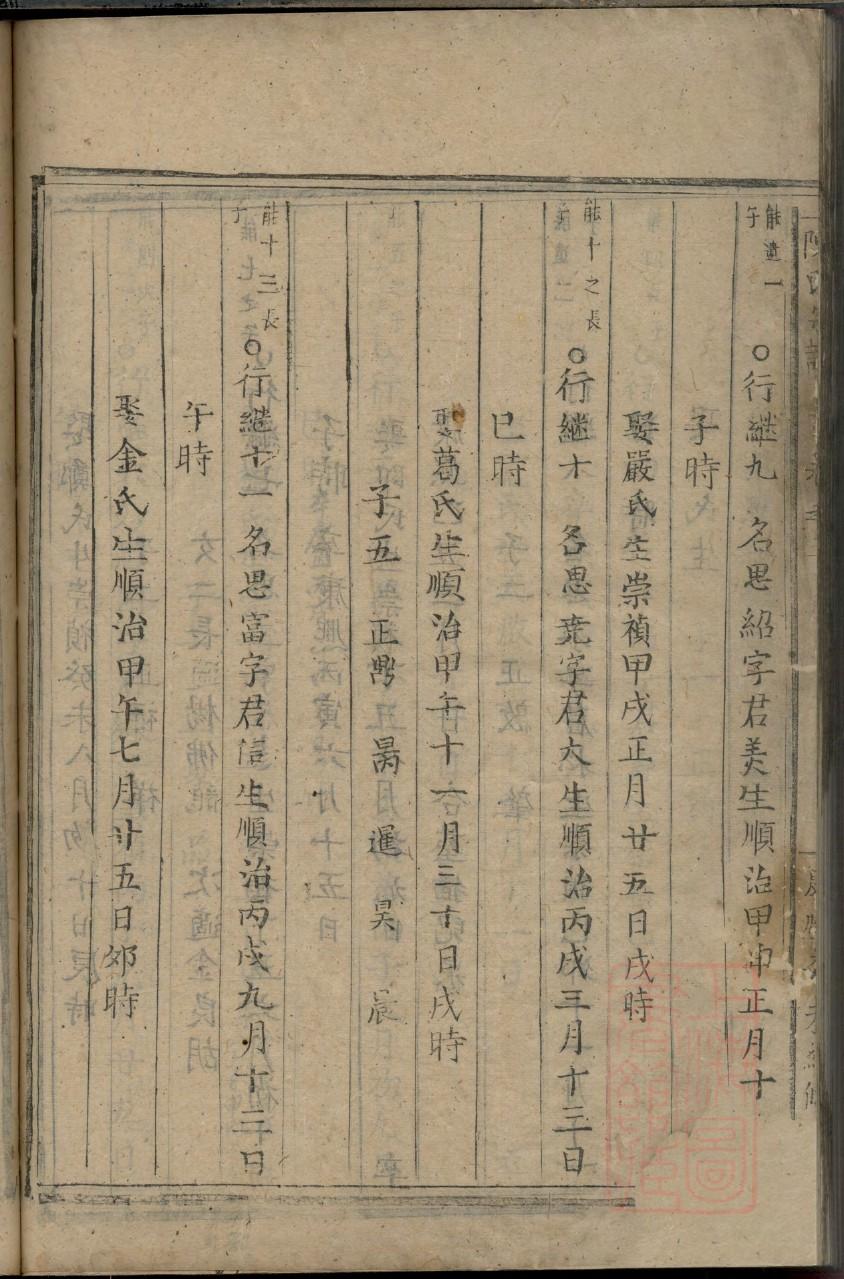 能遺一子
○行継九　名思紹字君美生順治甲申正月十
子時
娶嚴氏生崇禎甲戌正月廿五日戌時
能十之長子
○行継十　名思堯字君大生順治丙戌三月十三日
巳時
娶葛氏生順治甲午十一月三十日戌時
子五　正鼎　暠　暹　昊　晨
能十三長子
○行継十一　名思富字君信生順治丙戌九月十二日
午時
娶金氏生順治甲午七月廿五日卯時